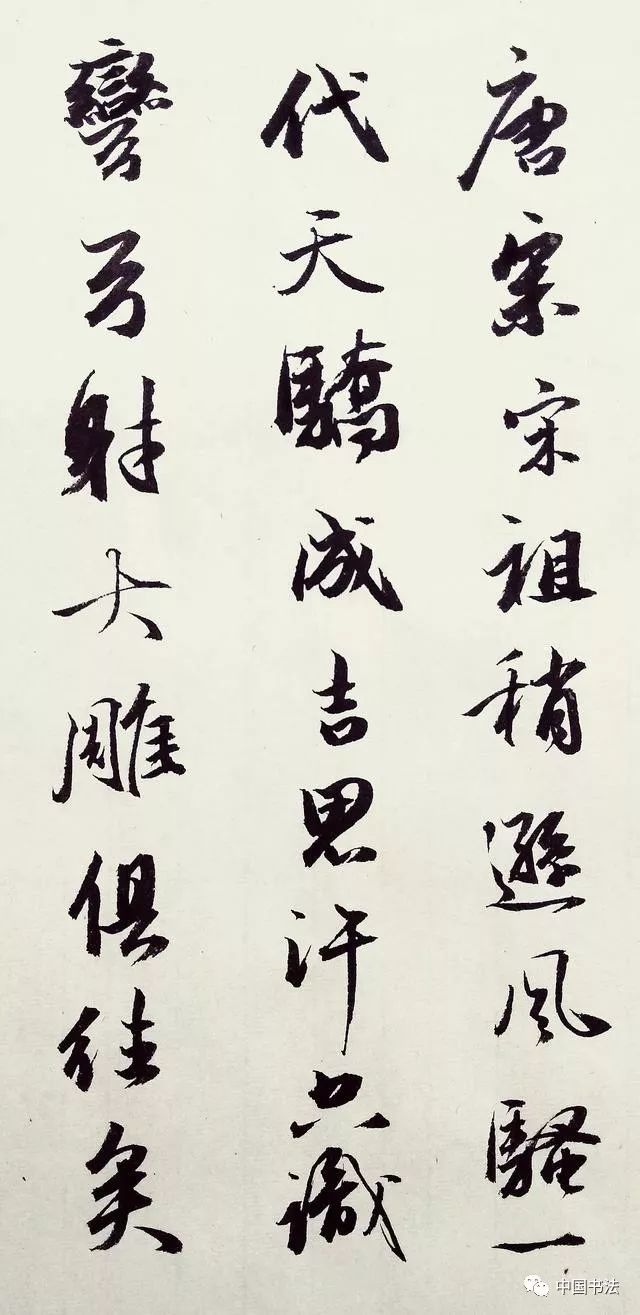 唐宗宋祖稍遜風騷一
代天驕成吉思汗只識
彎弓射大雕俱往矣
中国书法